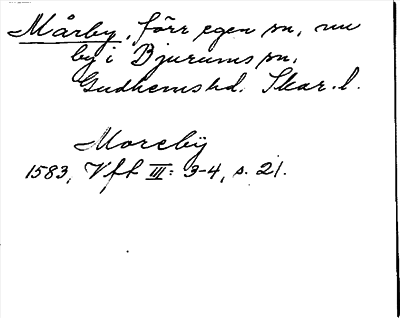 Mårby, förr egen sn, nu
by i Bjurums sn.
Gudhems hd. Skar. l.
Moreby
1583, Vft III: 3-4, s. 21.